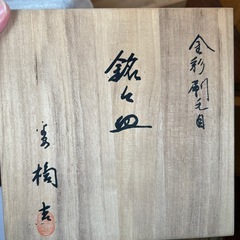 金彩刷毛目
銘々皿
吉